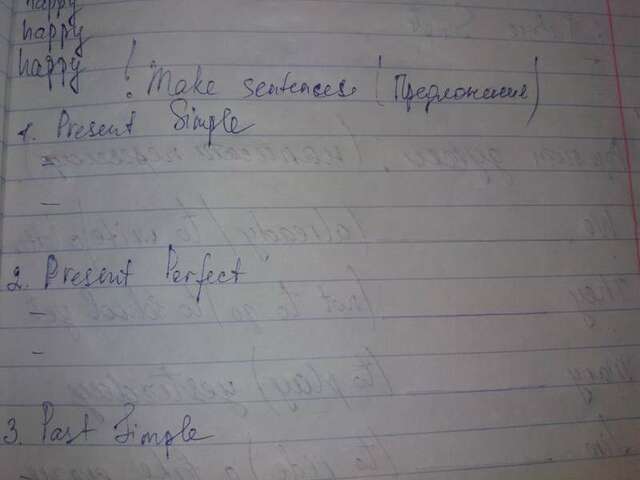 happy
happy
happy ! Make sentences (Предложение)
1. Present Simple
-
-
2. Present Perfect
-
-
3. Past Simple